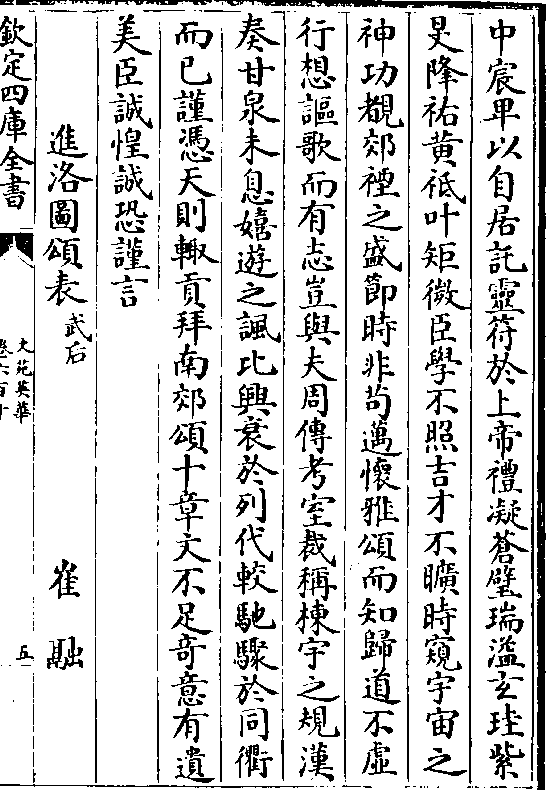 中宸卑以自居託靈符於上帝禮凝蒼璧瑞溢玄珪紫
旻降祐黄祇叶矩微臣學不照吉才不曠時窺宇宙之
神功覩郊禋之盛節時非茍邁懷雅頌而知歸道不虚
行想謳歌而有志豈與夫周傳考室裁稱棟宇之規漢
奏甘泉未息嬉遊之諷比興衰於列代較馳驟於同衢
而已謹憑天則輙貢拜南郊頌十章文不足奇意有遺
美臣誠惶誠恐謹言
進洛圖頌表武后 崔融
欽定四庫全書
文苑英華
卷六百十
五